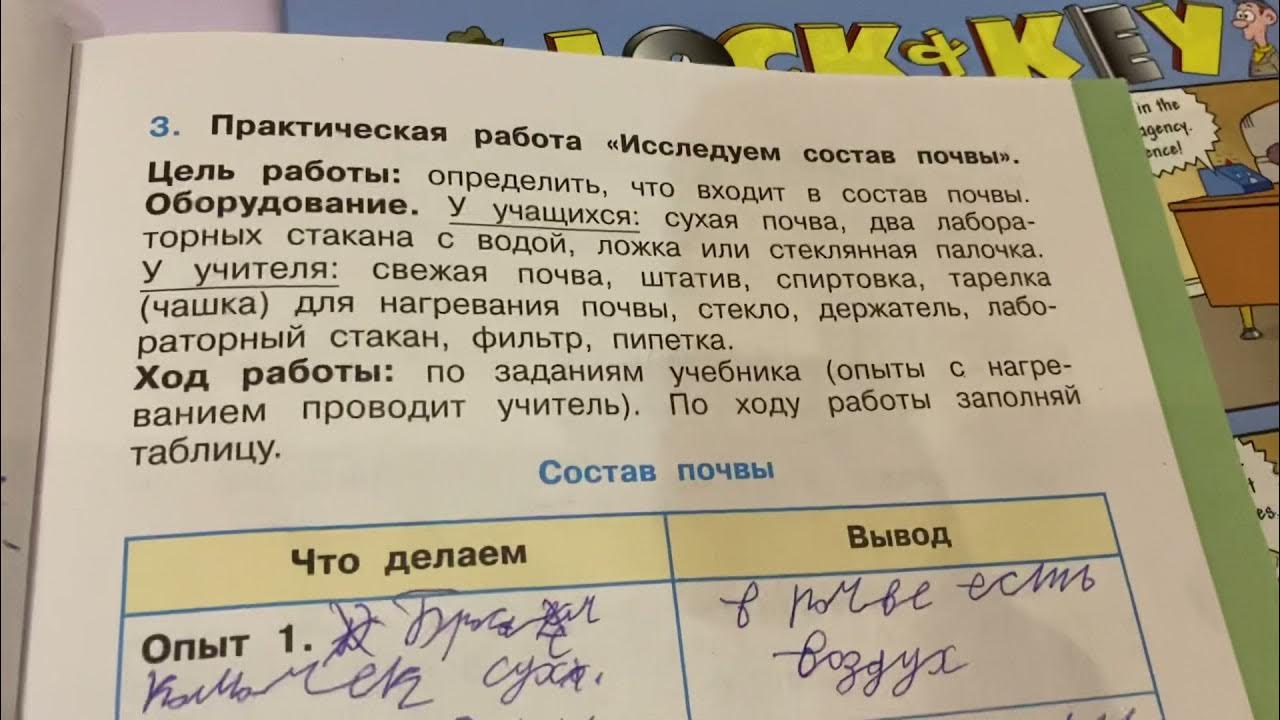 LOCK & KEY
in the
agency.
ence!
3. Практическая работа «Исследуем состав почвы».
Цель работы: определить, что входит в состав почвы.
Оборудование. У учащихся: сухая почва, два лабора-
торных стакана с водой, ложка или стеклянная палочка.
У учителя: свежая почва, штатив, спиртовка, тарелка
(чашка) для нагревания почвы, стекло, держатель, лабо-
раторный стакан, фильтр, пипетка.
Ход работы: по заданиям учебника (опыты с нагре-
ванием проводит учитель). По ходу работы заполняй
таблицу.
Состав почвы
Что делаем
Вывод
Опыт 1.
комочек сух.
в почве есть
воздух